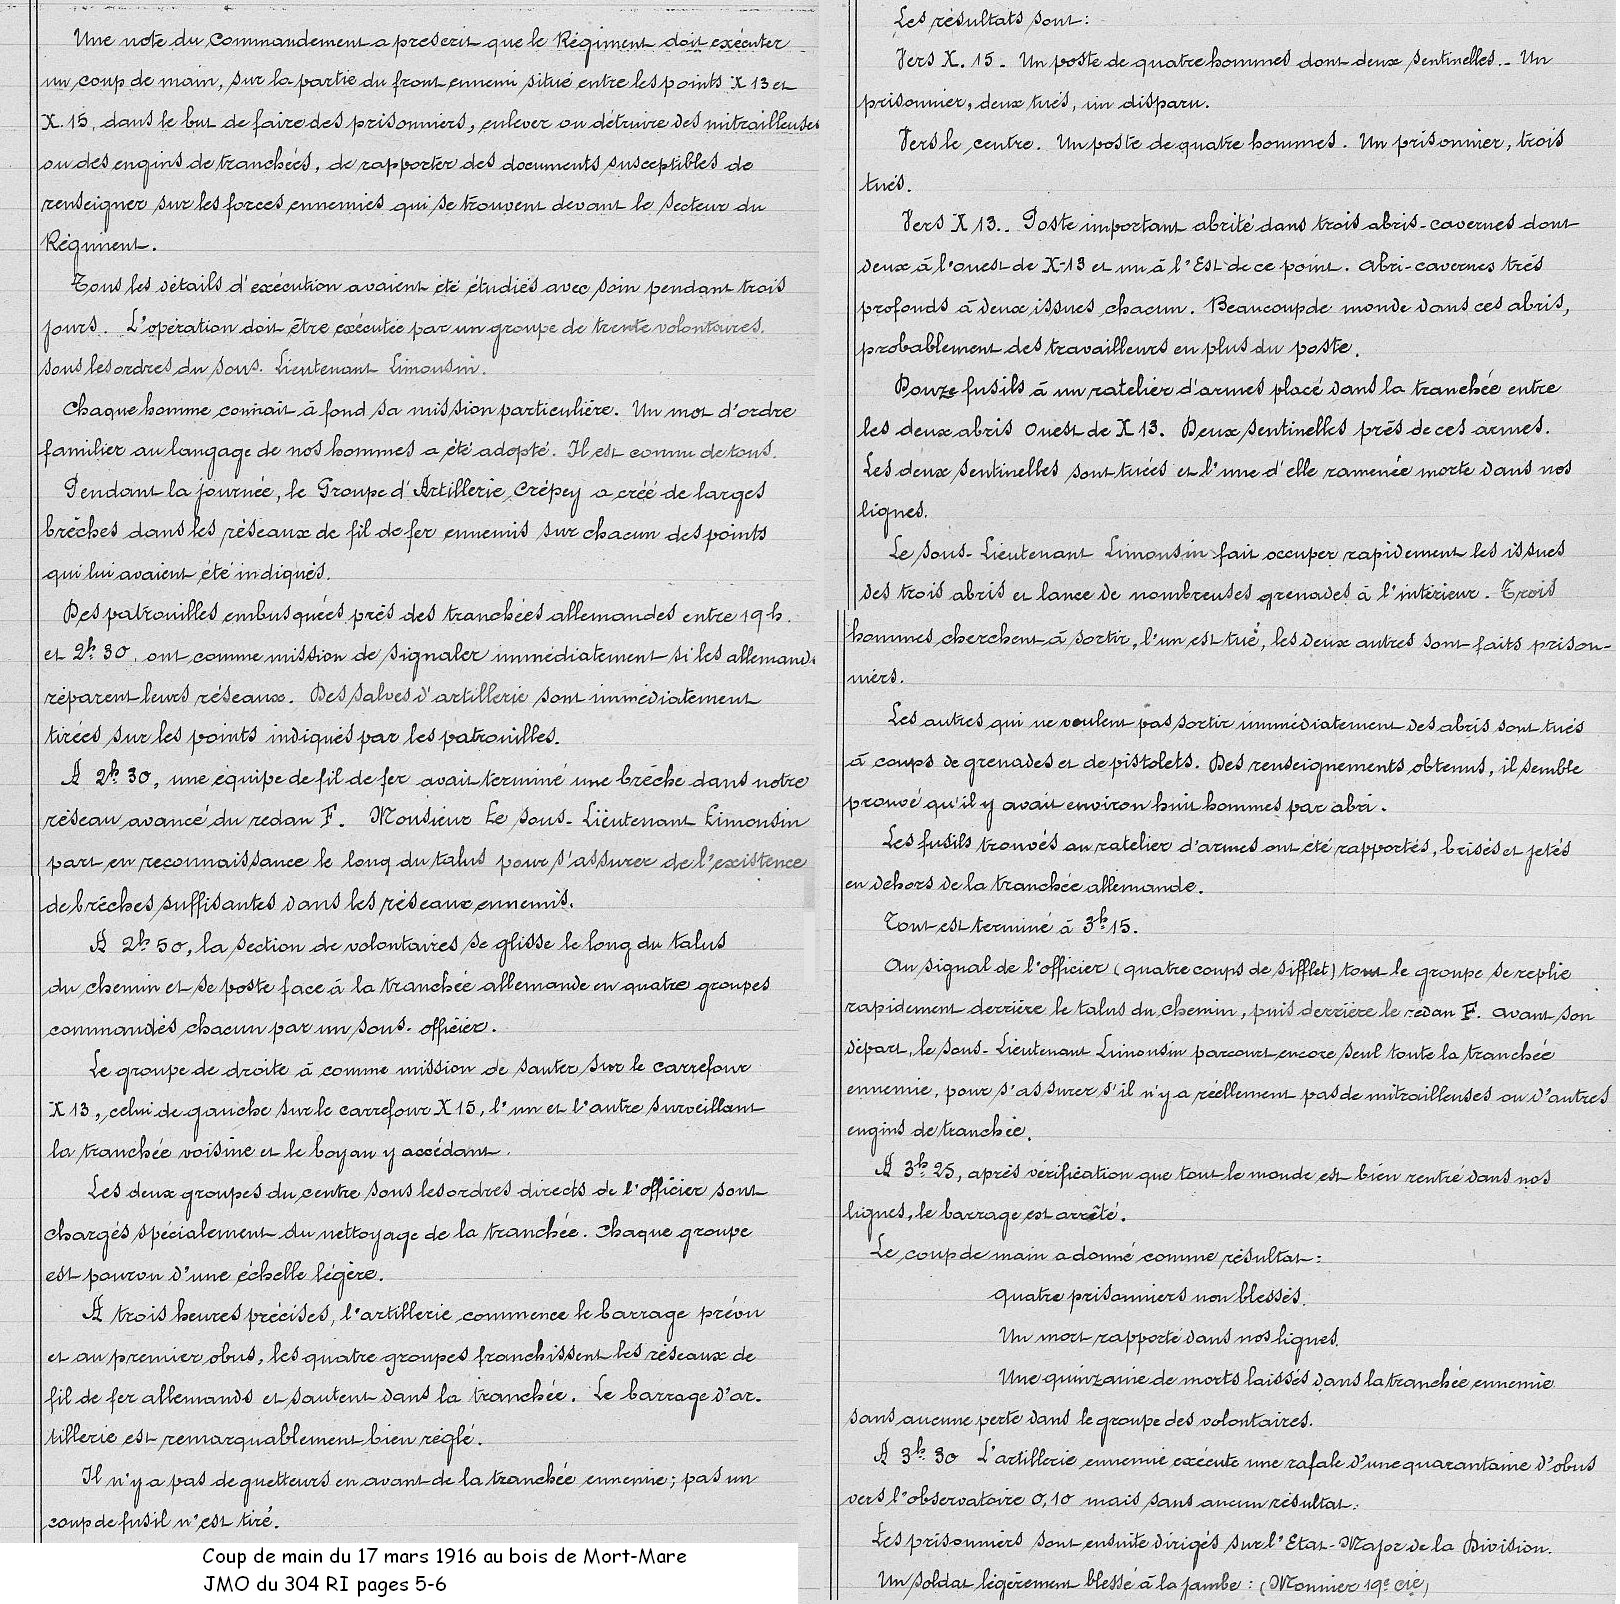 Une note du Commandement a prescrit que le Régiment doit exécuter
un coup de main, sur la partie du front ennemi situé entre les points X 13 et
X. 15, dans le but de faire des prisonniers, enlever ou détruire des mitrailleuses
ou des engins de tranchées, de rapporter des documents susceptibles de
renseigner sur les forces ennemies qui se trouvent devant le secteur du
Régiment.
Tous les détails d'exécution avaient été étudiés avec soin pendant trois
jours. L'opération doit être exécutée par un groupe de trente volontaires.
sous les ordres du sous-Lieutenant Limousin.
Chaque homme connait à fond sa mission particulière. Un mot d'ordre
familier au langage de nos hommes a été adopté. Il est connu de tous.
Pendant la journée, le Groupe d'Artillerie Crépey a créé de larges
brèches dans les réseaux de fil de fer ennemis sur chacun des points
qui lui avaient été indiqués.
Des patrouilles embusquées près des tranchées allemandes entre 19 h.
et 2h 30, ont comme mission de signaler immédiatement si les allemands
réparent leurs réseaux. Des salves d'artillerie sont immédiatement
tirées sur les points indiqués par les patrouilles.
A 2h 30, une équipe de fil de fer avait terminé une brèche dans notre
réseau avancé du redan F. Monsieur Le sous-Lieutenant Limousin
part en reconnaissance le long du talus pour s'assurer de l'existence
de brèches suffisantes dans les réseaux ennemis.
A 2h 50, la section de volontaires se glisse le long du talus
du chemin et se poste face à la tranchée allemande en quatre groupes
commandés chacun par un sous-officier.
Le groupe de droite à comme mission de sauter sur le carrefour
X 13, celui de gauche sur le carrefour X 15, l'un et l'autre surveillant
la tranchée voisine et le boyau y accédant.
Les deux groupes du centre sous les ordres directs de l'officier sont
chargés spécialement du nettoyage de la tranchée. Chaque groupe
est pourvu d'une échelle légère.
A trois heures précises, l'artillerie commence le barrage prévu
et au premier obus, les quatre groupes franchissent les réseaux de
fil de fer allemands et sautent dans la tranchée. Le barrage d'ar-
tillerie est remarquablement bien réglé.
Il n'y a pas de guetteurs en avant de la tranchée ennemie; pas un
coup de fusil n'est tiré.
Coup de main du 17 mars 1916 au bois de Mort-Mare
JMO du 304 RI pages 5-6
Les résultats sont:
Vers X. 15 - Un poste de quatre hommes dont deux sentinelles. - Un
prisonnier, deux tués, un disparu.
Vers le centre. Un poste de quatre hommes. Un prisonnier, trois
tués.
Vers X 13. - Poste important abrité dans trois abris-cavernes dont
deux à l'ouest de X-13 et un à l'Est de ce point. Abri-cavernes très
profonds à deux issues chacun. Beaucoup de monde dans ces abris,
probablement des travailleurs en plus du poste.
Douze fusils à un ratelier d'armes placé dans la tranchée entre
les deux abris Ouest de X 13. Deux sentinelles près de ces armes.
Les deux sentinelles sont tuées et l'une d'elle ramenée morte dans nos
lignes.
Le sous-Lieutenant Limousin fait occuper rapidement les issues
des trois abris et lance de nombreuses grenades à l'intérieur. Trois
hommes cherchent à sortir, l'un est tué, les deux autres sont faits prison-
niers.
Les autres qui ne veulent pas sortir immédiatement des abris sont tués
à coups de grenades et de pistolets. Des renseignements obtenus, il semble
prouvé qu'il y avait environ huit hommes par abri.
Les fusils trouvés au ratelier d'armes ont été rapportés, brisés et jetés
en dehors de la tranchée allemande.
Tout est terminé à 3h 15.
Au signal de l'officier (quatre coups de sifflet) tout le groupe se replie
rapidement derrière le talus du chemin, puis derrière le redan F. Avant son
départ, le sous-Lieutenant Limousin parcourt encore seul toute la tranchée
ennemie, pour s'assurer s'il n'y a réellement pas de mitrailleuses ou d'autres
engins de tranchée.
A 3h 25, après vérification que tout le monde est bien rentré dans nos
lignes, le barrage est arrêté.
Le coup de main a donné comme résultat:
quatre prisonniers non blessés.
Un mort rapporté dans nos lignes.
Une quinzaine de morts laissés dans la tranchée ennemie
sans aucune perte dans le groupe des volontaires.
A 3h 30 L'artillerie ennemie exécute une rafale d'une quarantaine d'obus
vers l'observatoire 0,10 mais sans aucun résultat.
Les prisonniers sont ensuite dirigés sur l'Etat-Major de la Division.
Un soldat légèrement blessé à la jambe: (Monnier 19e Cie)